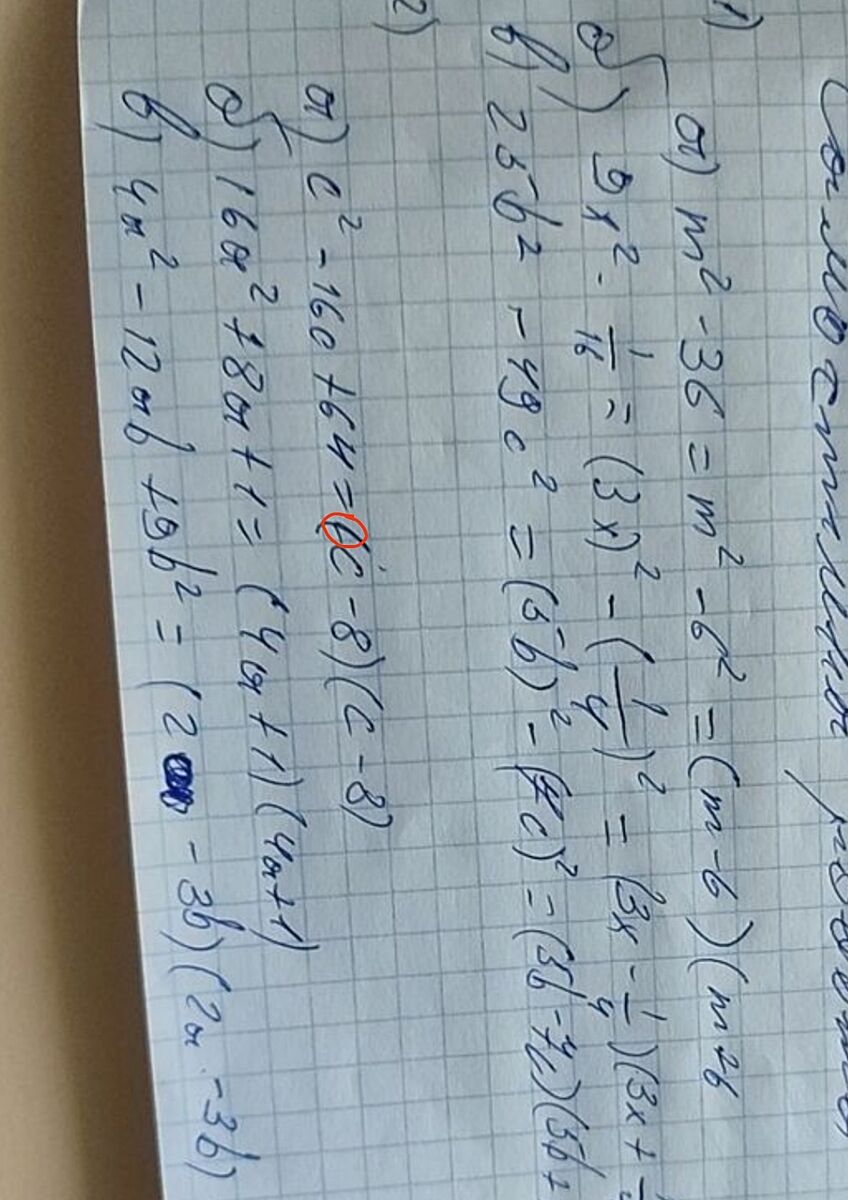 Самостоятельная работа
1)
а) m² - 36 = m² - 6² = (m - 6)(m + 6
б) 9x² - 1/16 = (3x)² - (1/4)² = (3x - 1/4)(3x +
в) 25b² - 49c² = (5b)² - (7c)² = (5b - 7c)(5b +
2)
а) c² - 16c + 64 = (c - 8)(c - 8)
б) 16a² + 8a + 1 = (4a + 1)(4a + 1)
в) 4a² - 12ab + 9b² = (2a - 3b)(2a - 3b)